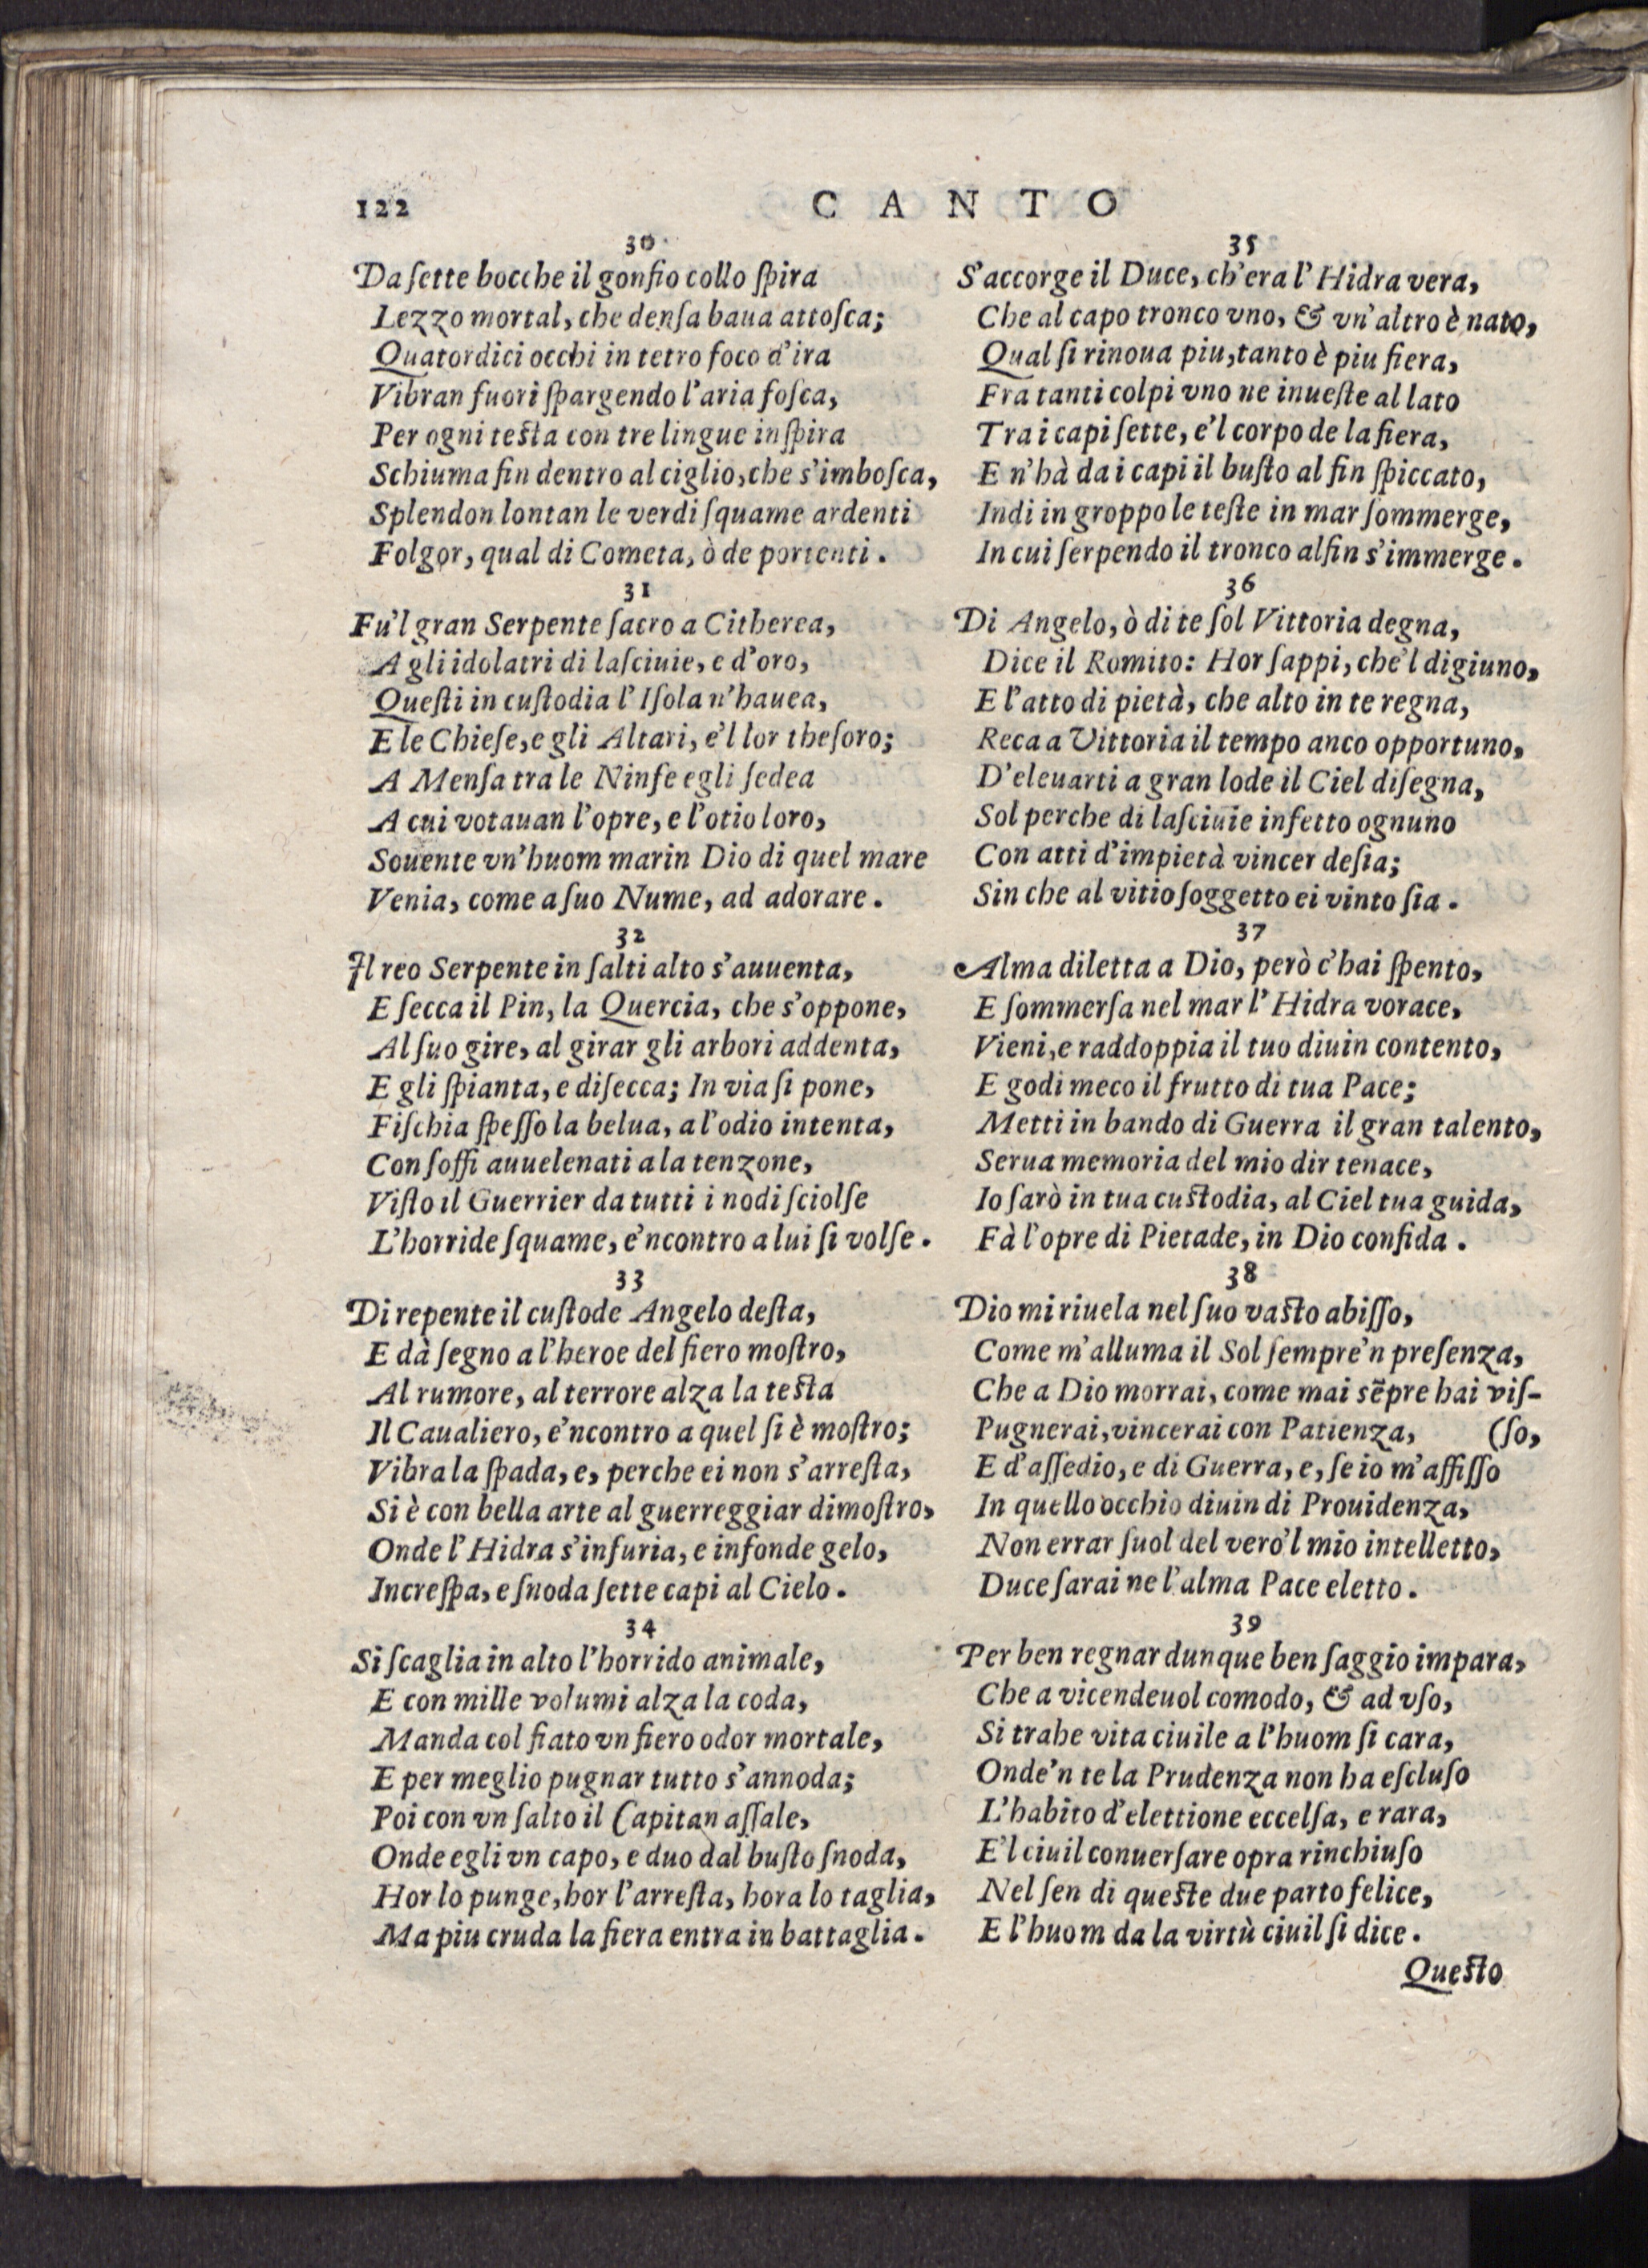 122 CANTO
30
Da ſette bocche il gonfio collo ſpira
Lezzo mortal, che denſa baua attoſca;
Quatordici occhi in tetro foco d'ira
Vibran fuori ſpargendo l'aria foſca,
Per ogni teſta con tre lingue inſpira
Schiuma fin dentro al ciglio, che s'imboſca,
Splendon lontan le verdi ſquame ardenti
Folgor, qual di Cometa, ò de portenti.
31
Fu'l gran Serpente ſacro a Citherea,
A gli idolatri di laſciuie, e d'oro,
Queſti in cuſtodia l'Iſola n'hauea,
E le Chieſe, e gli Altari, e'l lor theſoro;
A Menſa tra le Ninfe egli ſedea
A cui votauan l'opre, e l'otio loro,
Souente vn'huom marin Dio di quel mare
Venia, come a ſuo Nume, ad adorare.
32
Il reo Serpente in ſalti alto s'auuenta,
E ſecca il Pin, la Quercia, che s'oppone,
Al ſuo gire, al girar gli arbori addenta,
E gli ſpianta, e diſecca; In via ſi pone,
Fiſchia ſpeſſo la belua, a l'odio intenta,
Con ſoffi auuelenati a la tenzone,
Viſto il Guerrier da tutti i nodi ſciolſe
L'horride ſquame, e'ncontro a lui ſi volſe.
33
Di repente il cuſtode Angelo deſta,
E dà ſegno a l'heroe del fiero moſtro,
Al rumore, al terrore alza la teſta
Il Caualiero, e'ncontro a quel ſi è moſtro;
Vibra la ſpada, e, perche ei non s'arreſta,
Si è con bella arte al guerreggiar dimoſtro,
Onde l'Hidra s'infuria, e infonde gelo,
Increſpa, e ſnoda ſette capi al Cielo.
34
Si ſcaglia in alto l'horrido animale,
E con mille volumi alza la coda,
Manda col fiato vn fiero odor mortale,
E per meglio pugnar tutto s'annoda;
Poi con vn ſalto il Capitan aſſale,
Onde egli vn capo, e duo dal buſto ſnoda,
Hor lo punge, hor l'arreſta, hora lo taglia,
Ma piu cruda la fiera entra in battaglia.
35
S'accorge il Duce, ch'era l'Hidra vera,
Che al capo tronco vno, & vn'altro è nato,
Qual ſi rinoua piu, tanto è piu fiera,
Fra tanti colpi vno ne inueſte al lato
Tra i capi ſette, e'l corpo de la fiera,
E n'hà da i capi il buſto al fin ſpiccato,
Indi in groppo le teſte in mar ſommerge,
In cui ſerpendo il tronco alfin s'immerge.
36
Di Angelo, ò di te ſol Vittoria degna,
Dice il Romito: Hor ſappi, che'l digiuno,
E l'atto di pietà, che alto in te regna,
Reca a Vittoria il tempo anco opportuno,
D'eleuarti a gran lode il Ciel diſegna,
Sol perche di laſciuie infetto ognuno
Con atti d'impietà vincer deſia;
Sin che al vitio ſoggetto ei vinto ſia.
37
Alma diletta a Dio, però c'hai ſpento,
E ſommerſa nel mar l'Hidra vorace,
Vieni, e raddoppia il tuo diuin contento,
E godi meco il frutto di tua Pace;
Metti in bando di Guerra il gran talento,
Serua memoria del mio dir tenace,
Io ſarò in tua cuſtodia, al Ciel tua guida,
Fà l'opre di Pietade, in Dio confida.
38
Dio mi riuela nel ſuo vaſto abiſſo,
Come m'alluma il Sol ſempre'n preſenza,
Che a Dio morrai, come mai sẽpre hai viſ-
Pugnerai, vincerai con Patienza, (ſo,
E d'aſſedio, e di Guerra, e, ſe io m'affiſſo
In quello occhio diuin di Prouidenza,
Non errar ſuol del vero'l mio intelletto,
Duce ſarai ne l'alma Pace eletto.
39
Per ben regnar dunque ben ſaggio impara,
Che a vicendeuol comodo, & ad vſo,
Si trahe vita ciuile a l'huom ſi cara,
Onde'n te la Prudenza non ha eſcluſo
L'habito d'elettione eccelſa, e rara,
E'l ciuil conuerſare opra rinchiuſo
Nel ſen di queſte due parto felice,
E l'huom da la virtù ciuil ſi dice.
Queſto